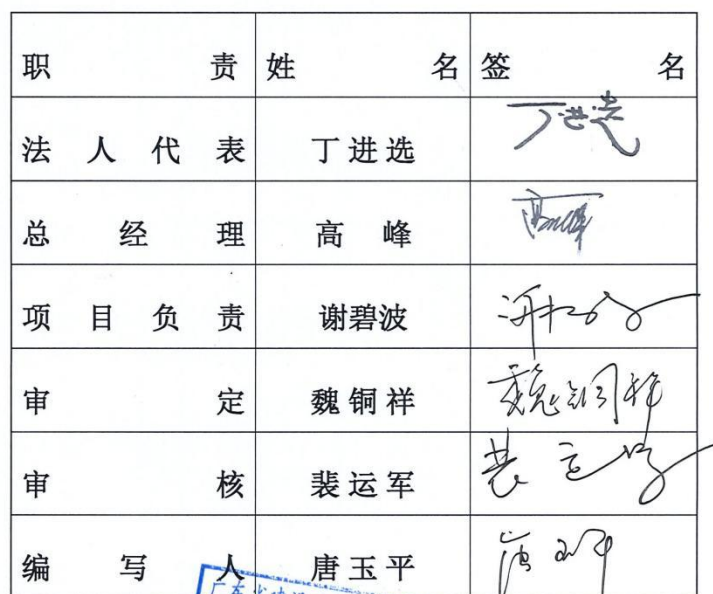 职责 姓名 签名
法人代表 丁进选 丁进选
总经理 高峰 高峰
项目负责 谢碧波
审定 魏铜祥 魏铜祥
审核 裴运军
编写人 唐玉平 唐玉平
广东省